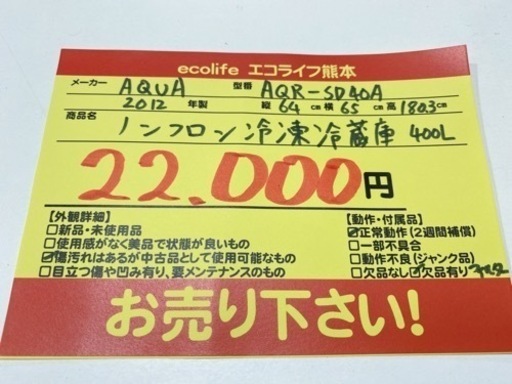 ecolife エコライフ熊本
メーカー AQUA 型番 AQR-SD40A
2012年製 縦64cm横65cm高180.3cm
商品名 ノンフロン冷凍冷蔵庫 400L
22,000円
【外観詳細】
□新品・未使用品
□使用感がなく美品で状態が良いもの
☑傷汚れはあるが中古品として使用可能なもの
□目立つ傷や凹み有り、要メンテナンスのもの
【動作・付属品】
☑正常動作(2週間補償)
□一部不具合
□動作不良(ジャンク品)
□欠品なし☑欠品有り
お売り下さい!